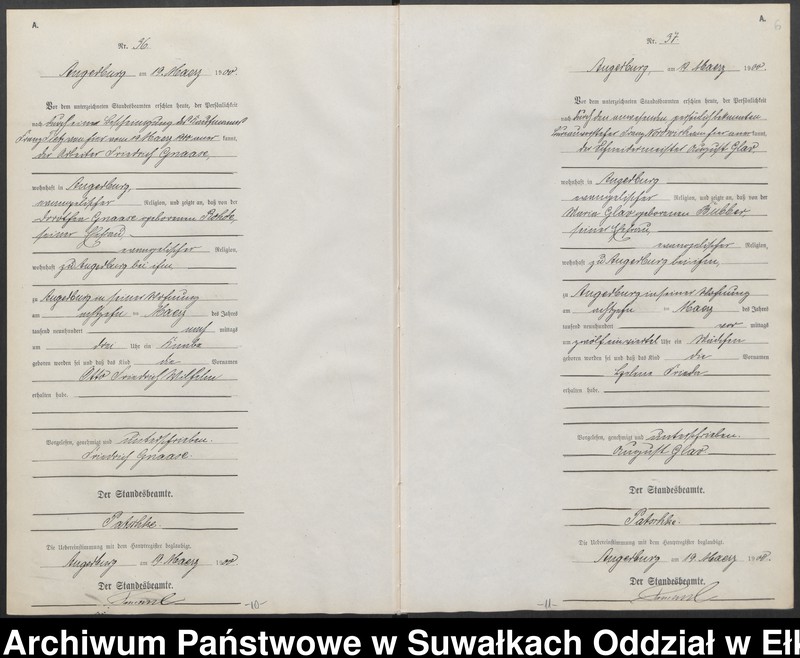 A.
Nr. 36.
Angerburg am 19. Maerz 1900.
Vor dem unterzeichneten Standesbeamten erschien heute, der Persönlichkeit
nach durch eine Bescheinigung des Kaufmanns
Franz vom 19. Maerz 1900 aner kannt,
der Arbeiter Friedrich Gnaase,
wohnhaft in Angerburg,
evangelischer Religion, und zeigte an, daß von der
Dorothea Gnaase geborenen
seiner Ehefrau,
evangelischer Religion,
wohnhaft zu Angerburg bei ihm,
zu Angerburg in seiner Wohnung
am achtzehn ten Maerz des Jahres
tausend neunhundert nach mittags
um drei Uhr ein Knabe
geboren worden sei und daß das Kind die Vornamen
Otto Friedrich Wilhelm
erhalten habe.
Vorgelesen, genehmigt und unterschrieben.
Friedrich Gnaase.
Der Standesbeamte.
Patschke.
Die Uebereinstimmung mit dem Hauptregister beglaubigt.
Angerburg am 19. Maerz 1900.
Der Standesbeamte.
-10-
A.
6
Nr. 37.
Angerburg, am 19. Maerz 1900.
Vor dem unterzeichneten Standesbeamten erschien heute, der Persönlichkeit
nach durch den anwesenden, persönlich bekannten
Bureauvorsteher Franz von hier aner kannt,
der Schneidermeister August Glas,
wohnhaft in Angerburg
evangelischer Religion, und zeigte an, daß von der
Maria Glas geborenen
seiner Ehefrau,
evangelischer Religion,
wohnhaft zu Angerburg bei ihm,
zu Angerburg in seiner Wohnung
am achtzehn ten Maerz des Jahres
tausend neunhundert vor mittags
um zwölf ein viertel Uhr ein Mädchen
geboren worden sei und daß das Kind die Vornamen
Frieda
erhalten habe.
Vorgelesen, genehmigt und unterschrieben.
August Glas
Der Standesbeamte.
Patschke.
Die Uebereinstimmung mit dem Hauptregister beglaubigt.
Angerburg am 19. Maerz 1900.
Der Standesbeamte.
-11-
Archiwum Państwowe w Suwałkach Oddział w Ełk